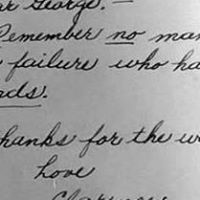 ar George: —
Remember no man
failure who ha
nds.
hanks for the w
Love
Clarence